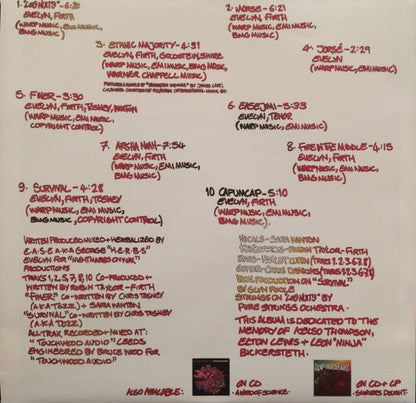 1. "LES NUITS" - 6:20
EVELYN, FIRTH
(WARP MUSIC, EMI MUSIC,
BMG MUSIC)
2. NORSE - 6:21
EVELYN, FIRTH
(WARP MUSIC, EMI MUSIC,
BMG MUSIC)
3. ETHNIC MAJORITY - 4:31
EVELYN, FIRTH, GOLDSTEIN, SHIRE
(WARP MUSIC, EMI MUSIC, BMG MUSIC,
WARNER CHAPPELL MUSIC)
BY JAMES LAST,
4. JORGÉ - 2:29
EVELYN
(WARP MUSIC, EMI MUSIC)
5. FINER - 3:30
EVELYN, FIRTH, TOSNEY, WINTON
(WARP MUSIC, EMI MUSIC,
COPYRIGHT CONTROL)
6. EASE JIMI - 5:33
EVELYN, TENOR
(WARP MUSIC, EMI MUSIC)
7. ARGHA NOAH - 7:54
EVELYN, FIRTH
(WARP MUSIC, EMI MUSIC,
BMG MUSIC)
8. FIRE IN THE MIDDLE - 4:15
EVELYN, FIRTH
(WARP MUSIC, EMI MUSIC,
BMG MUSIC)
9. SURVIVAL - 4:28
EVELYN, FIRTH, TOSNEY
(WARP MUSIC, EMI MUSIC,
BMG MUSIC, COPYRIGHT CONTROL)
10 CAPUMCAP - 5:10
EVELYN, FIRTH
(WARP MUSIC, EMI MUSIC,
BMG MUSIC).
WRITTEN PRODUCED MIXED + HERBALIZED BY
E.A.S.E A.K.A GEORGE "H.E.R.B.S"
EVELYN FOR "NIGHTMARES ON WAX"
PRODUCTIONS
TRAXS 1, 2, 5, 7, 8, 10 CO-PRODUCED +
WRITTEN BY ROBIN TAYLOR-FIRTH
"FINER" CO-WRITTEN BY CHRIS TOSNEY
(A.K.A TOZZ) + SARA WINTON
"SURVIVAL" CO-WRITTEN BY CHRIS TOSNEY
(A.K.A TOZZ)
ALL TRAX RECORDED + MIXED AT:
"TOUCHWOOD AUDIO" LEEDS
ENGINEERED BY BRUCE WOOD FOR
"TOUCHWOOD AUDIO"
VOCALS - SARA WINTON
ROBIN TAYLOR-FIRTH
BASS - HAMLET LUTON (TRAXS 1, 2, 3, 6, 7, 8)
GUITAR - CHRIS DAWKINS (TRAXS 1, 2, 3, 6, 7, 8)
VOCAL PRODUCTION ON "SURVIVAL"
BY GLYN POOLE
STRINGS ON "LES NUITS" BY
PURE STRINGS OCHESTRA.
THIS ALBUM IS DEDICATED TO THE
MEMORY OF KELSO THOMPSON,
ELTON LEWIS + LEON "NINJA"
BICKERSTETH.
ALSO AVAILABLE:
ON CD
A WORD OF SCIENCE.
ON CD + LP
SMOKERS DELIGHT.